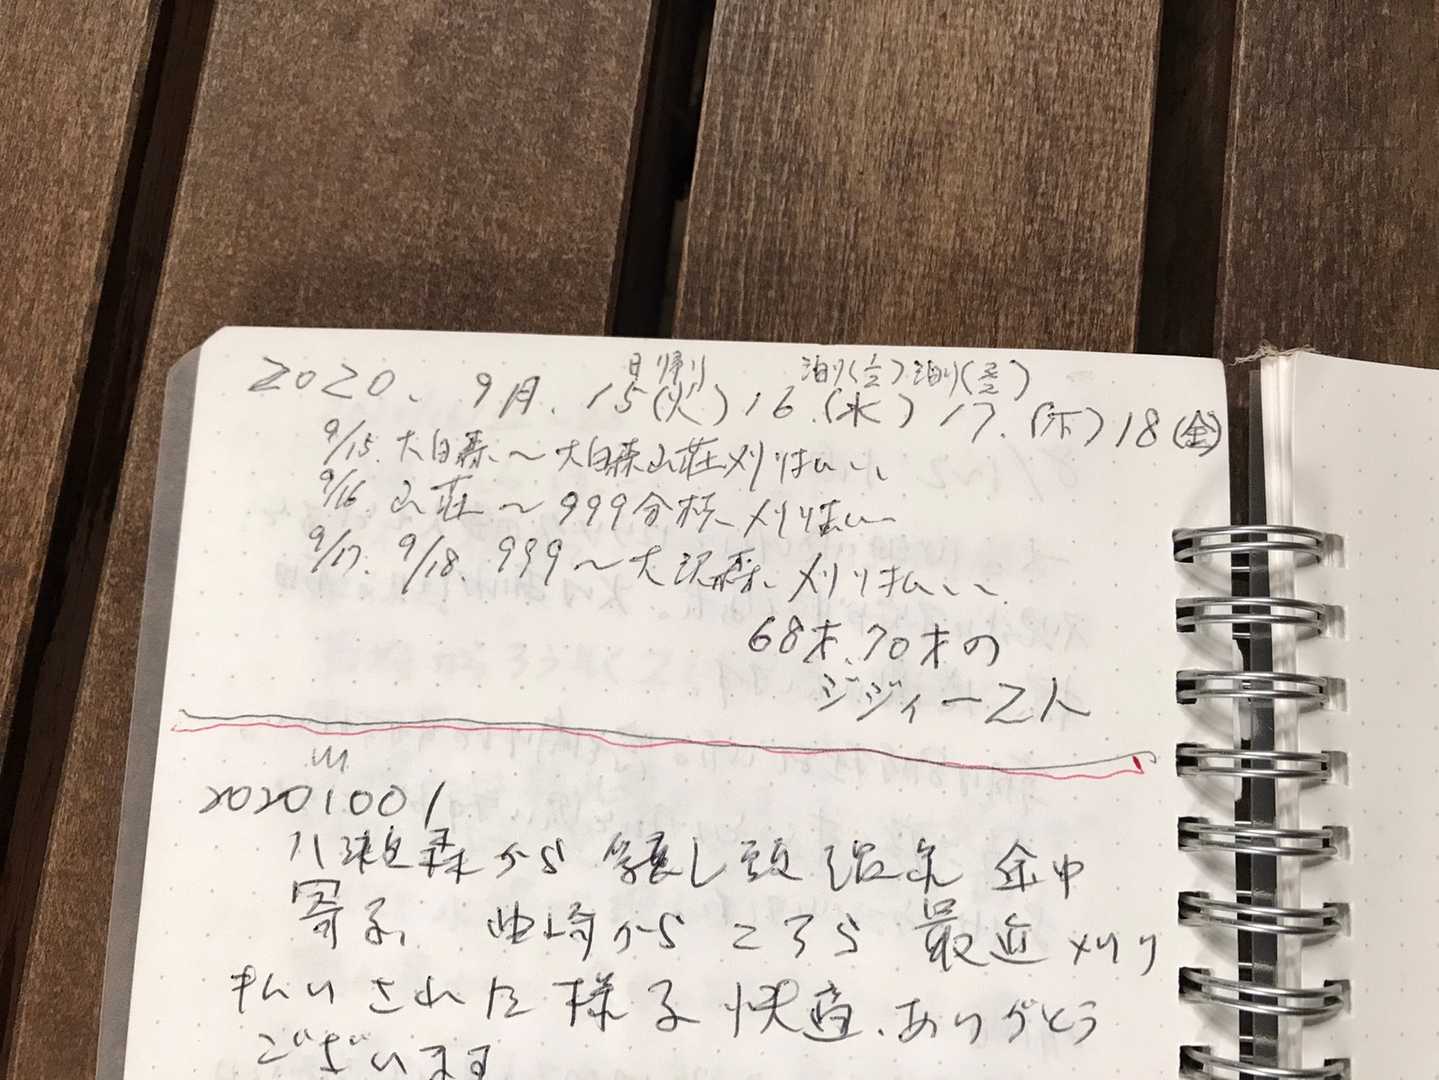 日帰り 泊り(立) 泊り(立)
2020、9月、15(火)16(水)17.(木)18(金)
9/15 大白森、〜大白森山荘刈りはらい、
9/16 山荘〜999分岐、刈りはらい
9/17、9/18、999〜大沢森、刈り払い、
68才、70才の
ジジィー2人
20201001
八瀬森から 頭温泉 途中
寄る。曲崎から こちら 最近 刈り
払いされた 様子 快適、ありがとう
ございます